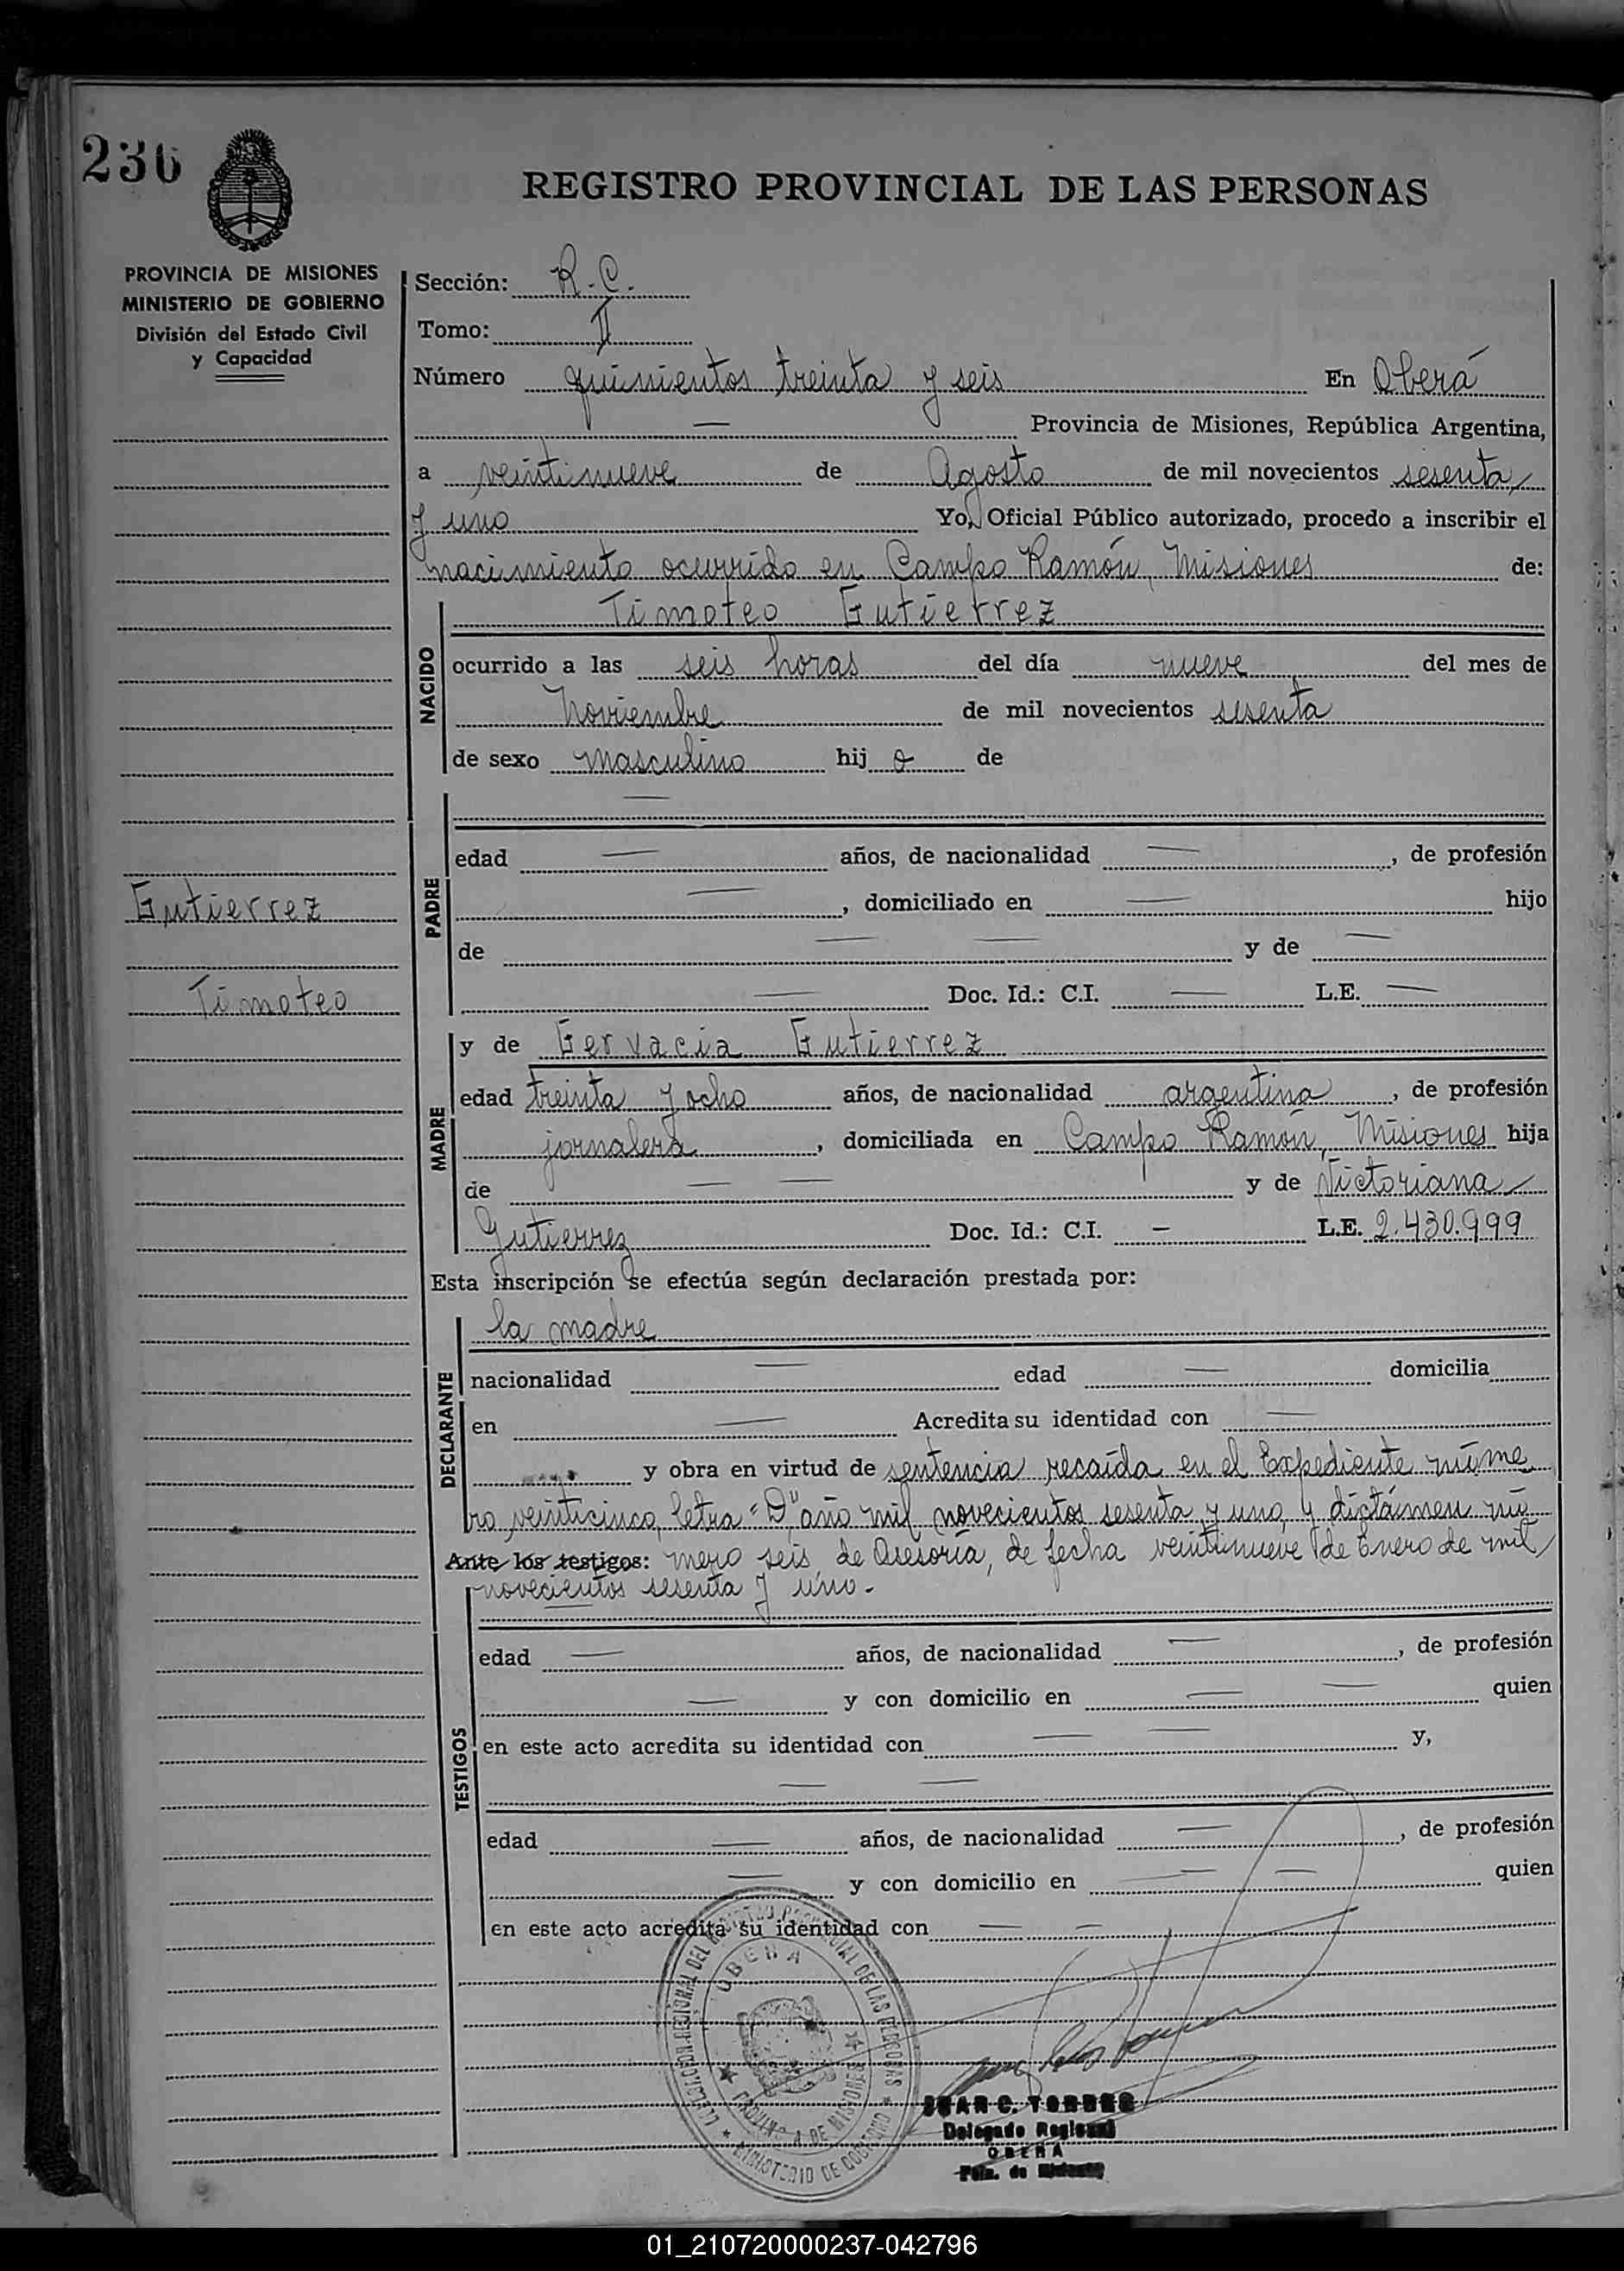 236
REGISTRO PROVINCIAL DE LAS PERSONAS
PROVINCIA DE MISIONES
MINISTERIO DE GOBIERNO
División del Estado Civil
y Capacidad
Sección: R.C.
Tomo: II
Número quinientos treinta y seis En Oberá
— Provincia de Misiones, República Argentina,
a veintinueve de Agosto de mil novecientos sesenta
y uno Yo, Oficial Público autorizado, procedo a inscribir el
nacimiento ocurrido en Campo Ramón, Misiones de:
NACIDO
Timoteo Gutierrez
ocurrido a las seis horas del día nueve del mes de
Noviembre de mil novecientos sesenta
de sexo masculino hij o de
PADRE
—
edad — años, de nacionalidad —, de profesión
—, domiciliado en — hijo
de — — y de —
— Doc. Id.: C.I. — L.E. —
Gutierrez
Timoteo
MADRE
y de Gervacia Gutierrez
edad treinta y ocho años, de nacionalidad argentina, de profesión
jornalera, domiciliada en Campo Ramón, Misiones hija
de — — y de Victoriana
Gutierrez Doc. Id.: C.I. — L.E. 2.430.999
Esta inscripción se efectúa según declaración prestada por:
DECLARANTE
la madre
nacionalidad — edad — domicilia
en — Acredita su identidad con —
y obra en virtud de sentencia recaída en el Expediente núme
ro veinticinco, letra "D", año mil novecientos sesenta y uno, y dictámen nú
Ante los testigos: mero seis de Asesoría, de fecha veintinueve de Enero de mil
novecientos sesenta y uno.-
TESTIGOS
edad — años, de nacionalidad —, de profesión
— y con domicilio en — — quien
en este acto acredita su identidad con — — y,
— —
edad — años, de nacionalidad —, de profesión
— y con domicilio en — — quien
en este acto acredita su identidad con — —
DELEGACION REGIONAL DEL REGISTRO PROVINCIAL DE LAS PERSONAS
OBERA
PROVINCIA DE MISIONES
MINISTERIO DE GOBIERNO
JUAN C. TORRES
Delegado Regional
OBERA
Pcia. de Misiones
01_210720000237-042796